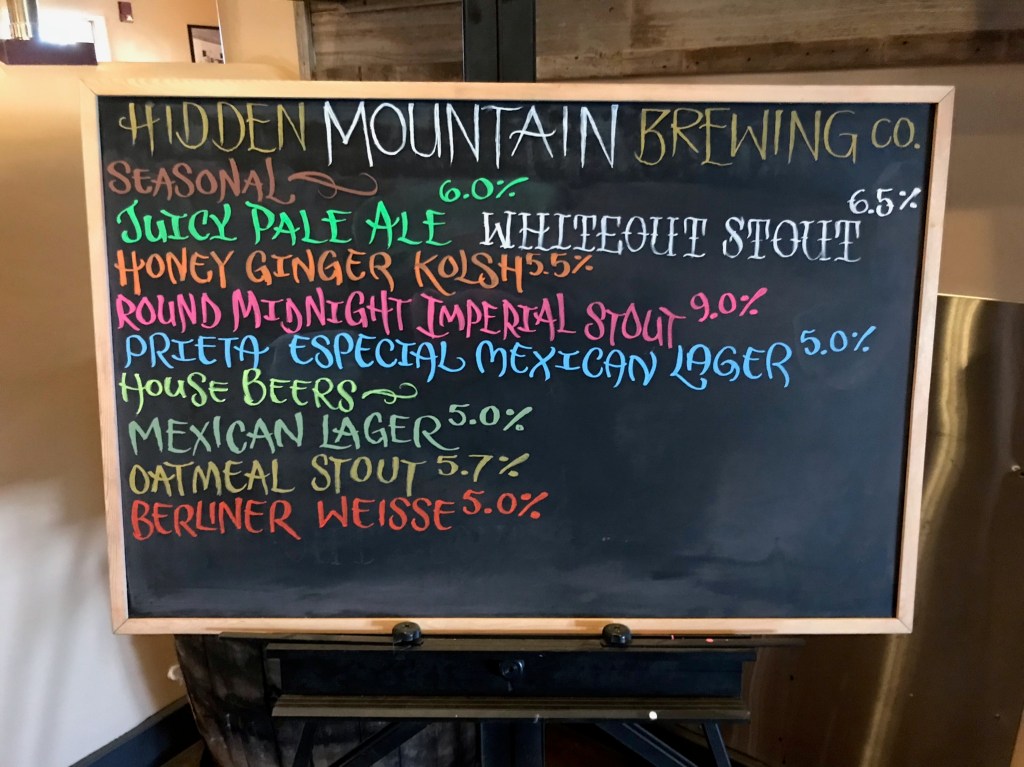 HIDDEN MOUNTAIN BREWING CO.
SEASONAL
JUICY PALE ALE 6.0% WHITEOUT STOUT 6.5%
HONEY GINGER KOLSH 5.5%
ROUND MIDNIGHT IMPERIAL STOUT 9.0%
PRIETA ESPECIAL MEXICAN LAGER 5.0%
HOUSE BEERS
MEXICAN LAGER 5.0%
OATMEAL STOUT 5.7%
BERLINER WEISSE 5.0%